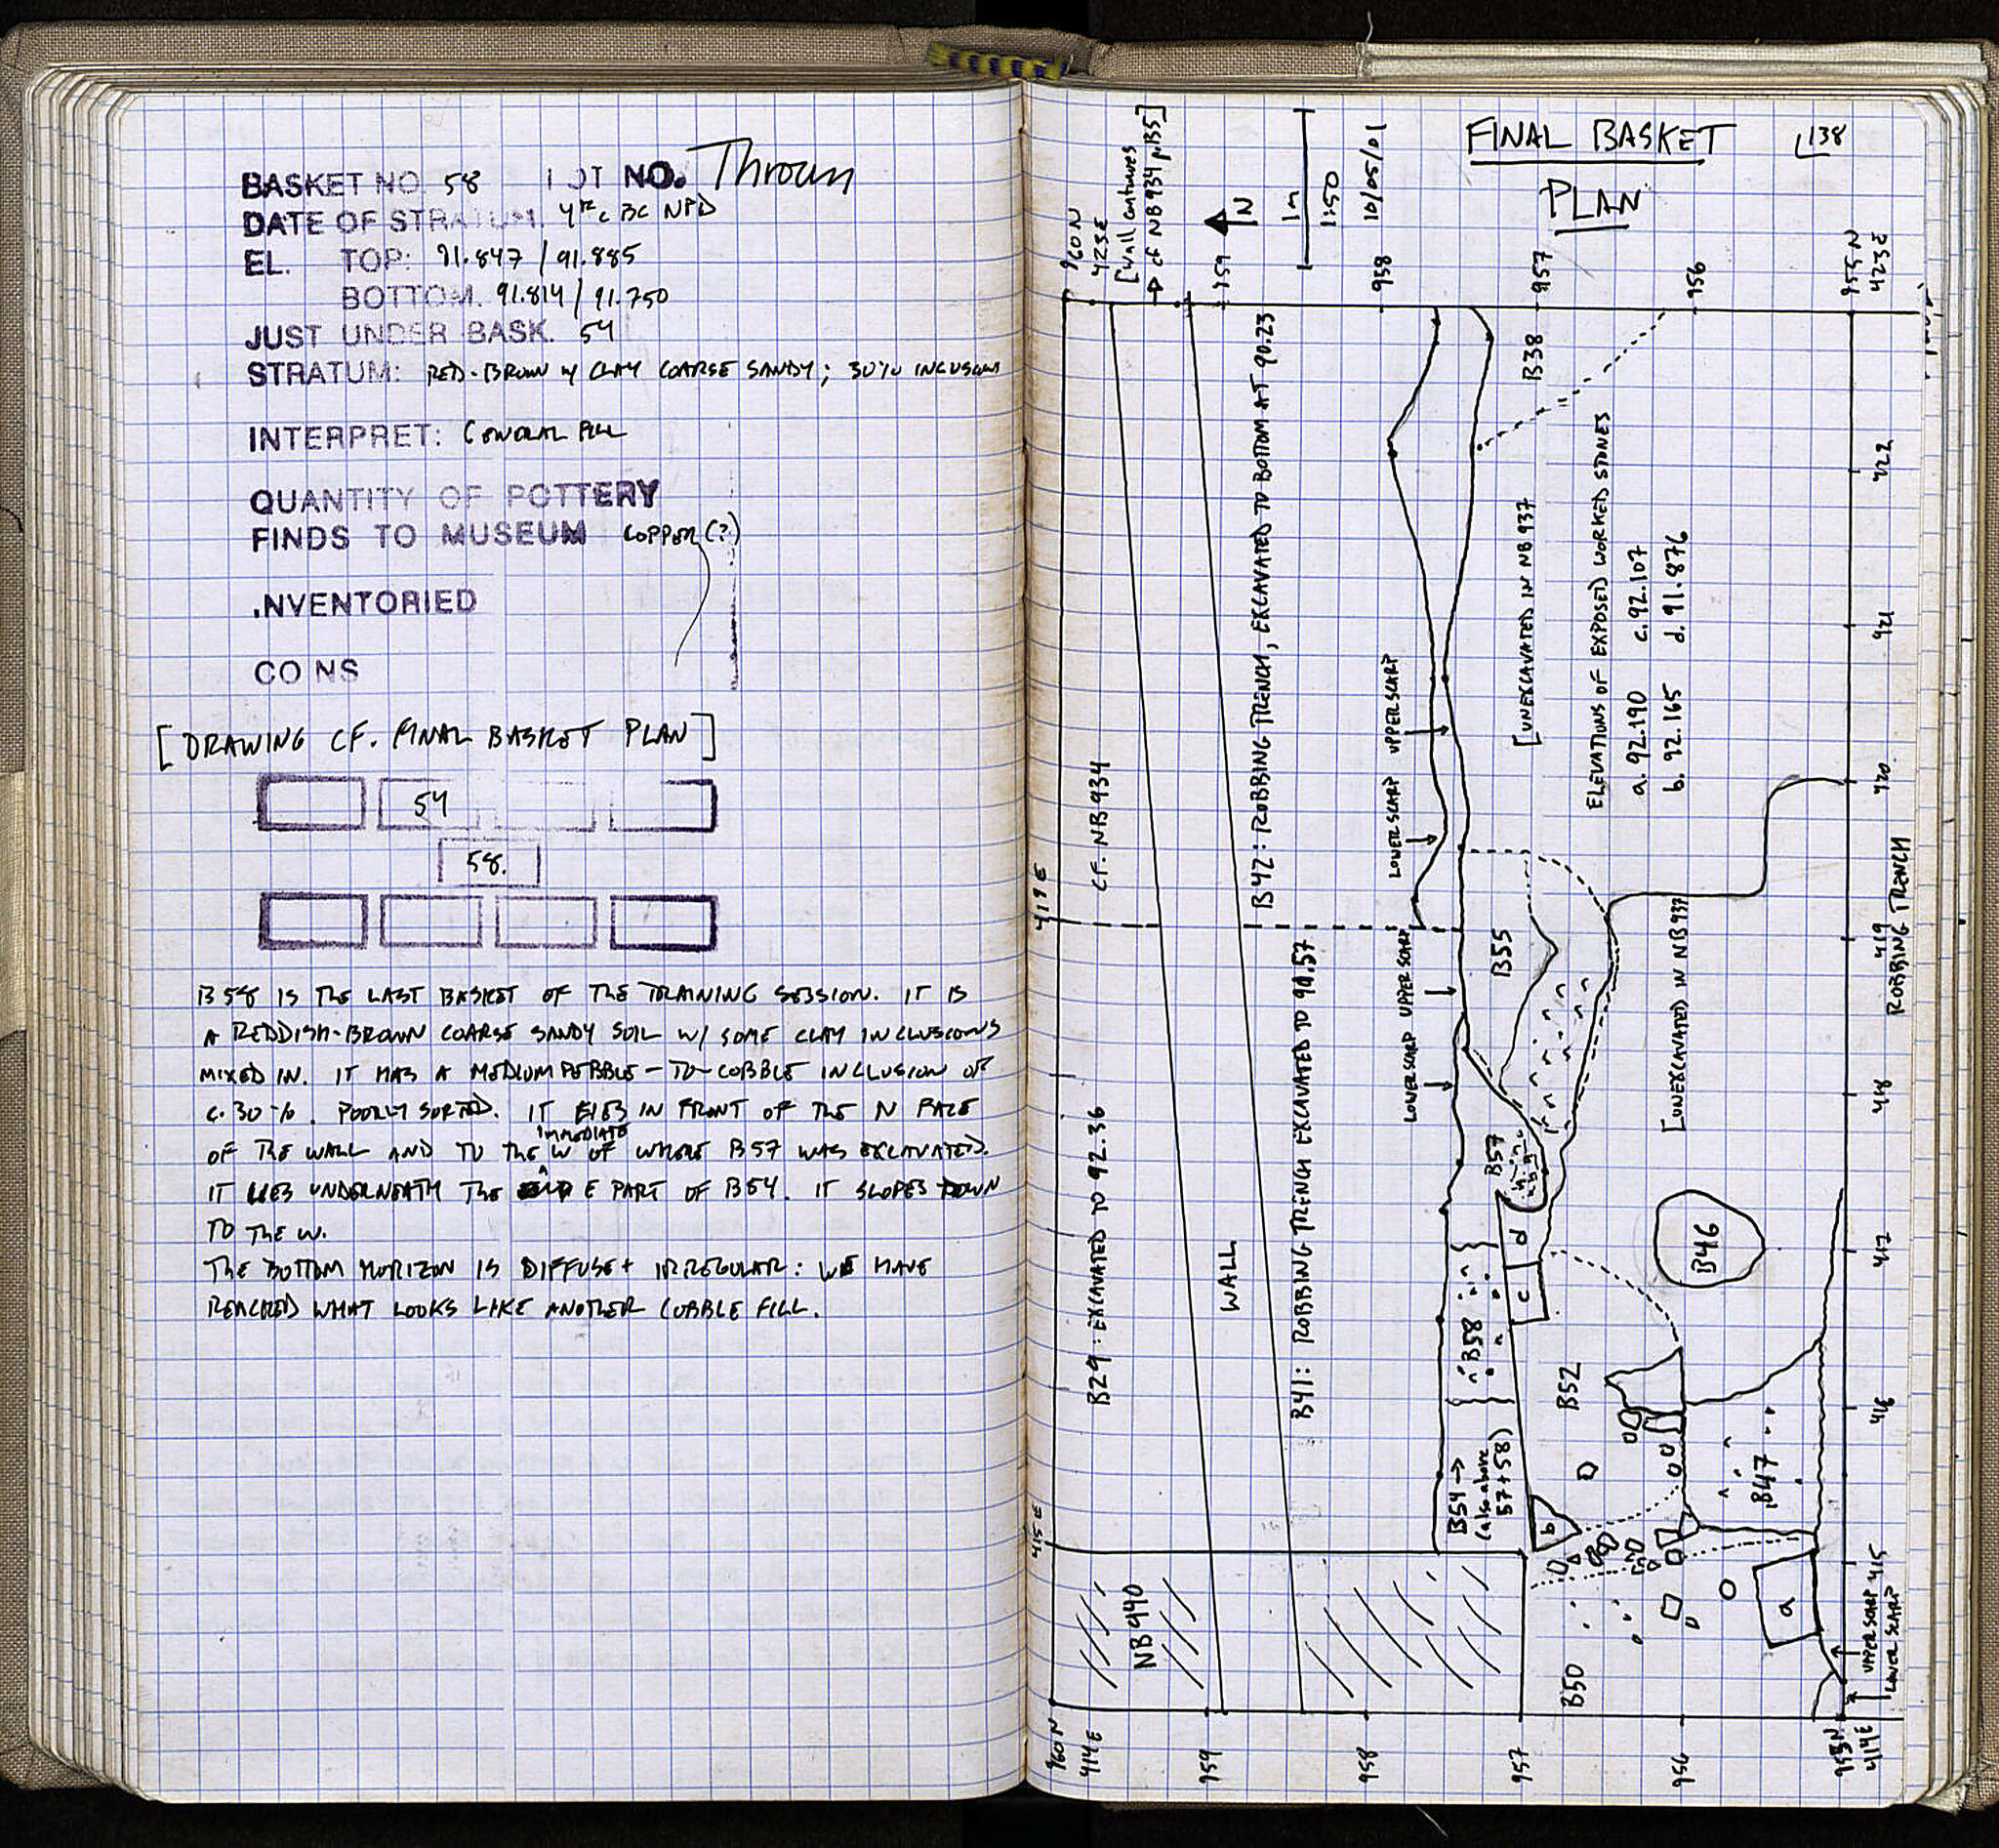 BASKET NO. 58 LOT NO. Thrown
DATE OF STRATUM. 4th c BC NPD
EL. TOP: 91.847 / 91.885
BOTTOM. 91.814 / 91.750
JUST UNDER BASK. 54
STRATUM: RED-BROWN w/ CLAY COARSE SANDY; 30% INCLUSIONS
INTERPRET: GENERAL FILL
QUANTITY OF POTTERY
FINDS TO MUSEUM COPPER (?)
.NVENTORIED
CO NS
[DRAWING CF. FINAL BASKET PLAN]
54
58.
B58 IS THE LAST BASKET OF THE TRAINING SESSION. IT IS
A REDDISH-BROWN COARSE SANDY SOIL W/ SOME CLAY INCLUSIONS
MIXED IN. IT HAS A MEDIUM PEBBLE-TO-COBBLE INCLUSION OF
c. 30%. POORLY SORTED. IT LIES IN FRONT OF THE N FACE
OF THE WALL AND TO THE IMMEDIATE W OF WHERE B57 WAS EXCAVATED.
IT LIES UNDERNEATH THE E PART OF B54. IT SLOPES DOWN
TO THE W.
THE BOTTOM HORIZON IS DIFFUSE + IRREGULAR: WE HAVE
REACHED WHAT LOOKS LIKE ANOTHER COBBLE FILL.
138
FINAL BASKET
PLAN
10/05/01
1:50
1m
N
[Wall continues
cf NB934 p.135]
960N
423E
959
958
957
956
955N
423E
CF. NB934
B42: ROBBING TRENCH, EXCAVATED TO BOTTOM AT 90.23
B38
[UNEXCAVATED IN NB937
ELEVATIONS OF EXPOSED WORKED STONES
a. 92.190 c. 92.107
b. 92.165 d. 91.876
LOWER SCARP UPPER SCARP
422
421
420
419
418
417
416
415
ROBBING TRENCH
419E
B29: EXCAVATED TO 92.36
WALL
B41: ROBBING TRENCH EXCAVATED TO 90.57
LOWER SCARP UPPER SCARP
B55
[UNEXCAVATED IN NB937
B57
d
c
B58
B46
B52
B54 →
(also above
57+58)
b
B47
415E
NB940
B50
a
UPPER SCARP
LOWER SCARP
960N
414E
959
958
957
956
414E